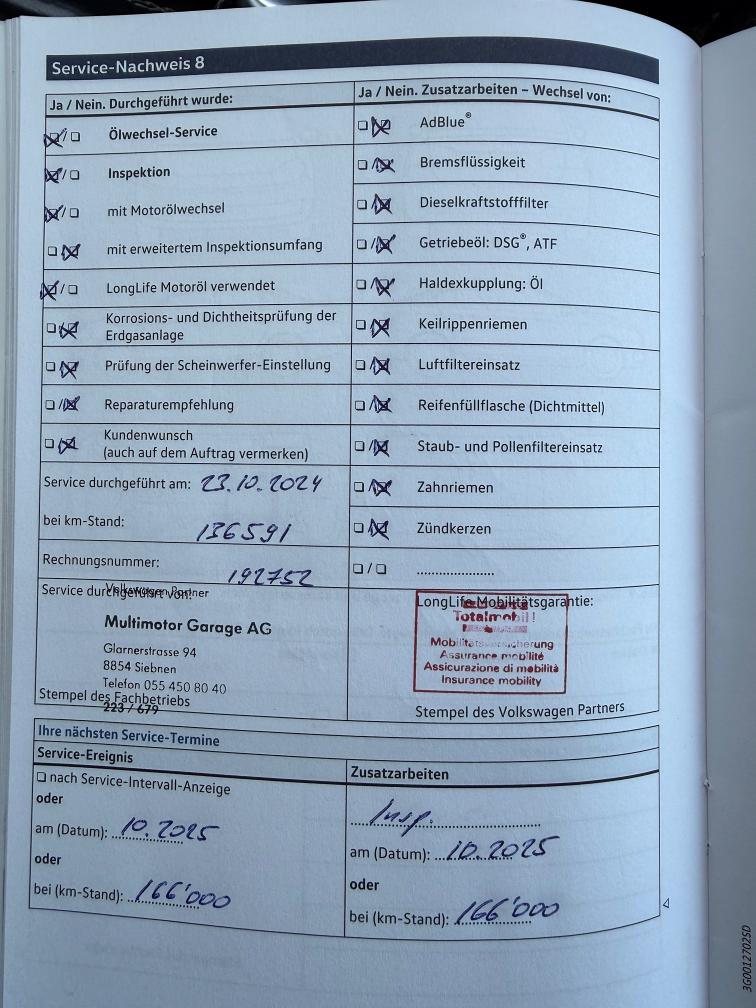 Service-Nachweis 8
Ja / Nein. Durchgeführt wurde:
Ölwechsel-Service
Inspektion
mit Motorölwechsel
mit erweitertem Inspektionsumfang
LongLife Motoröl verwendet
Korrosions- und Dichtheitsprüfung der
Erdgasanlage
Prüfung der Scheinwerfer-Einstellung
Reparaturempfehlung
Kundenwunsch
(auch auf dem Auftrag vermerken)
Service durchgeführt am: 23.10.2024
bei km-Stand: 136591
Rechnungsnummer: 192752
Service durchgeführt von:
Volkswagen Partner
Multimotor Garage AG
Glarnerstrasse 94
8854 Siebnen
Telefon 055 450 80 40
Stempel des Fachbetriebs
223 / 679
Ja / Nein. Zusatzarbeiten – Wechsel von:
AdBlue®
Bremsflüssigkeit
Dieselkraftstofffilter
Getriebeöl: DSG®, ATF
Haldexkupplung: Öl
Keilrippenriemen
Luftfiltereinsatz
Reifenfüllflasche (Dichtmittel)
Staub- und Pollenfiltereinsatz
Zahnriemen
Zündkerzen
LongLife Mobilitätsgarantie:
Totalmobil!
Mobilitätsversicherung
Assurance mobilité
Assicurazione di mobilità
Insurance mobility
Stempel des Volkswagen Partners
Ihre nächsten Service-Termine
Service-Ereignis
nach Service-Intervall-Anzeige
oder
am (Datum): 10.2025
oder
bei (km-Stand): 166'000
Zusatzarbeiten
Insp.
am (Datum): 10.2025
oder
bei (km-Stand): 166'000
3G0012702SD